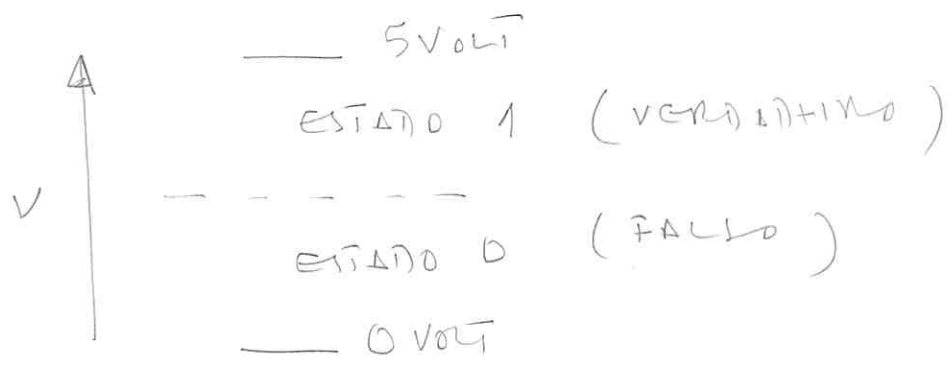 5 VOLT
ESTADO 1 (VERDADEIRO)
V
ESTADO 0 (FALSO)
0 VOLT